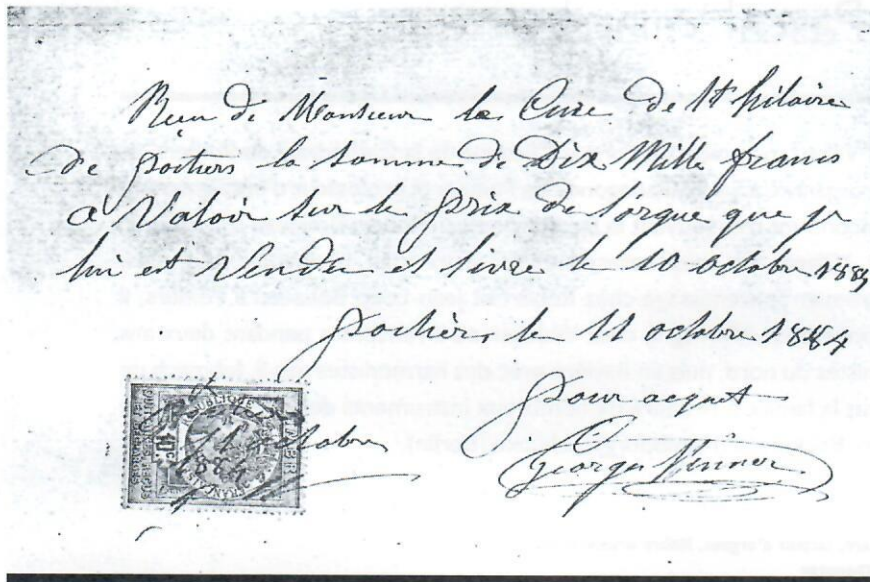 Reçu de Monsieur le Curé de St hilaire
de poitiers la somme de Dix Mille francs
a Valoir sur le prix de l'orgue que je
lui est Vendu et livré le 10 octobre 1884
poitiers le 11 octobre 1884
pour acquet
Georges Wenner
11 octobre
1884